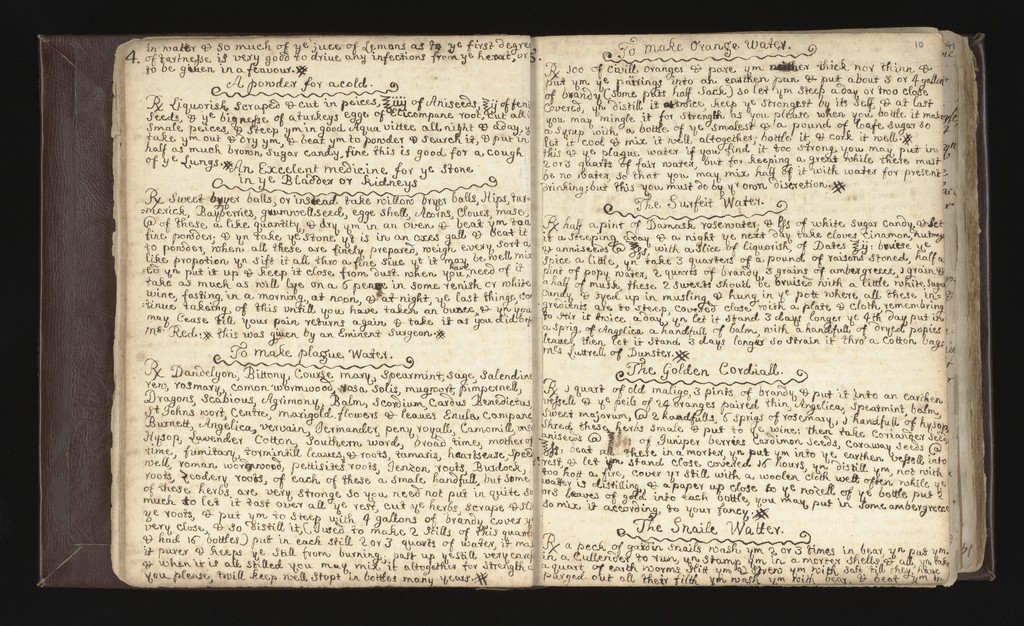 4.
in water & so much of ye juce of Lemons as to ye first degree
of tartnesse is very good to drive any infections from ye heart, or
to be given in a feavour.
A powder for a cold.
Rx Liquorish scraped & cut in peices, of Aniseeds, of fen
seeds, & ye bignesse of a turkeys egge of Elicompane root, cut all
smale peices, & steep ym in good Aqua vittee all night & a day, y
take ym out & dry ym, & beat ym to powder & search it, & put in
half as much brown sugar candy, fine this is good for a cough
of ye Lungs.
An Excelent medicine for ye stone
in ye Bladder or kidneys
Rx Sweet bryer balls, or instead take willow bryer balls, Hips, tur-
merick, Bayberries, grumwellseed, egge shell, Acorns, Cloves, mase,
@ of these, a like quantity, & dry ym in an oven & beat ym to a
fine powder, & yn take ye stone yt is in an oxes gall & beat it
to powder, when all these are finely prepared, weigh every sort a
like propotion yn sift it all thro a fine sive yt it may be well mix
ed yn put it up & keep it close from dust. when you have need of it
take as much as will lye on a 6 pence in some renish or white
wine, fasting, in a morning, at noon, & at night, ye last things, con
tinue takeing of this untill you have taken an ounce, & yn you
may cease till your pain returns again & take it as you did before
this was given by an Eminent surgeon.
To make plague Water.
Rx Dandelyon, Bittony, Course mary, spearmint, sage, Salendine
ren, rosmary, comon wormwood, rosa solis, mugwort, pimpernell,
Dragons, scabious, Agrimony, Balm, scordium, Cardus Benedictus,
St Johns wort, Centre, marigold flowers & leaves Enula Campane
Burnett, Angelica, vervain, Jermander, peny royall, Camomill,
Hysop, Lavender Cotton, Southern word, broad time, mother of
time, fumitary, tormintill leaves, & roots, tamaris, heartsease, speed
well, roman wormwood, pettisites roots, Jenzon roots, Burdock
roots, zeodery roots, of each of these a smale handfull, but some
of these herbs are very strong so you need not put in quite so
much to let it tast over all ye rest, cut ye herbs, scrape &
ye roots, & put ym to steep with 4 gallons of brandy, cover y
very close, & so distill it, (I used to make 2 stills of this quanti
& had 16 bottles) put in each still 2 or 3 quarts of water, it ma
it purer & keeps ye still from burning, past up ye still very care
& when it is all stilled you may mix it altogether for strength a
you please, twill keep well stopt in bottles many years.
10
To make Orange Water.
Rx 100 of Civill Oranges & pare ym neither thick nor thinn, &
put ym ye pairings into an earthen pan & put about 3 or 4 gallons
of brandy (some put half sack) so let ym steep a day or two close
covered, yn distill it at twice, keep ye strongest by its self, & at last
you may mingle it for strength as you please when you bottle it make
a syrup with a bottle of ye smalest & a pound of loafe sugar so
let it cool & mix it well altogether, bottle it & cork it well.
this & ye plague water if you find it too strong, you may put in
2 or 3 quarts of fair water, but for keeping a great while there must
be no water, so that you may mix half of it with water for present
drinking, but this you must do by yr own discretion.
The Surfeit Water.
Rx half a pint of Damask rosewater, & of white sugar candy, & let
it a steeping a day & a night ye next day take cloves cinamon, nutmeg
& anniseeds @ with a slice of liquorish of Dates bruise ye
spice a little, yn take 3 quarters of a pound of raisons stoned, half a
pint of popy water, 2 quarts of brandy, 3 grains of ambergreece, 1 grain &
a half of musk, these 2 sweets should be bruised with a little white sugar
candy & tyed up in musling & hung in ye pott where all these in-
gredients are to steep, covered close with a plate & cloth, remembring
to stir it twice a day, yn let it stand 3 days longer ye 4th day put in
a sprig of Angelica a handfull of balm, with a handfull of dryed popies
leaves, then let it stand 3 days longer so strain it thro a Cotton bag.
mrs Luttrell of Dunster.
The Golden Cordiall.
Rx 1 quart of old maligo, 3 pints of brandy & put it into an earthen
vessell & ye peils of 24 oranges paired thin, Angelica, spearmint, balm,
sweet majorum, @ 2 handfulls, 6 sprigs of rosemary, 1 handfull of hysop,
shred these herbs smale & put to ye wine: then take Corriander seed
aniseeds @ of Juniper berries Cardimon seeds, Caraway seeds @
beat all these in a morter, yn put ym into ye earthen vessell, into
rest, & let ym stand close covered 16 hours, yn distill ym, not with
too hot a fire, cover yr still with a woolen cloth well often while ye
water is distilling, & a paper up close to ye nozell of ye bottle put 2
or 3 leaves of gold into each bottle, you may put in some ambergreece
so mix it according to your fancy.
The Snaile Watter.
Rx a peck of gardin snails wash ym 2 or 3 times in bear, yn put ym
in a Cullender to run, yn stamp ym in a morter shells & all, yn take
a quart of earth worms slitt ym & strew ym with salt till they have
purged out all their filth ym wash ym with bear, & beat ym in